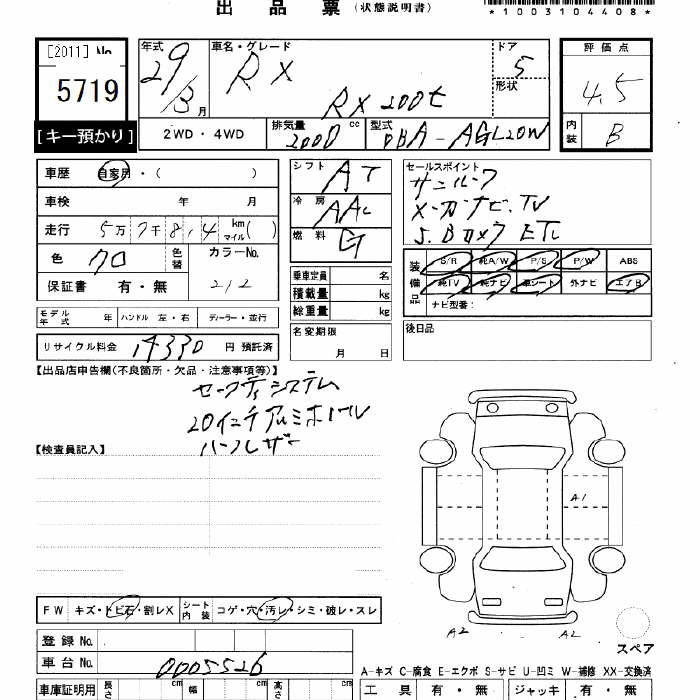 出品票(状態説明書)
*1003104408*
[2011] No.
5719
[キー預かり]
年式 29/3月
車名・グレード RX RX200t
ドア 5
形状
評価点 4.5
内装 B
2WD・4WD
排気量 2000 cc
型式 DBA-AGL20W
車歴 自家用・( )
車検 年 月
走行 5万7千8,4 km マイル( )
色 クロ 色替
カラーNo. 212
保証書 有・無
シフト AT
冷房 AAC
燃料 G
乗車定員 名
積載量 kg
総重量 kg
セールスポイント
サンルーフ
メーカナビ.TV
S.Bカメラ ETC
装備品 S/R 純A/W P/S P/W ABS
純TV 純ナビ 革シート 外ナビ エアB
ナビ型番:
モデル年式 年 ハンドル 左・右 ディーラー・並行
名変期限 月 日
後日品
リサイクル料金 14330 円 預託済
【出品店申告欄(不良箇所・欠品・注意事項等)】
セーフティシステム
20インチアルミホイル
ハーフレザー
【検査員記入】
A1
A2
A2
スペア
FW キズ・トビ石・割レX
シート内装 コゲ・穴・汚レ・シミ・破レ・スレ
登録 No.
車台 No. 0005526
A-キズ C-腐食 E-エクボ S-サビ U-凹ミ W-補修 XX-交換済
車庫証明用 長さ cm 幅 cm 高さ cm
工具 有・無 ジャッキ 有・無